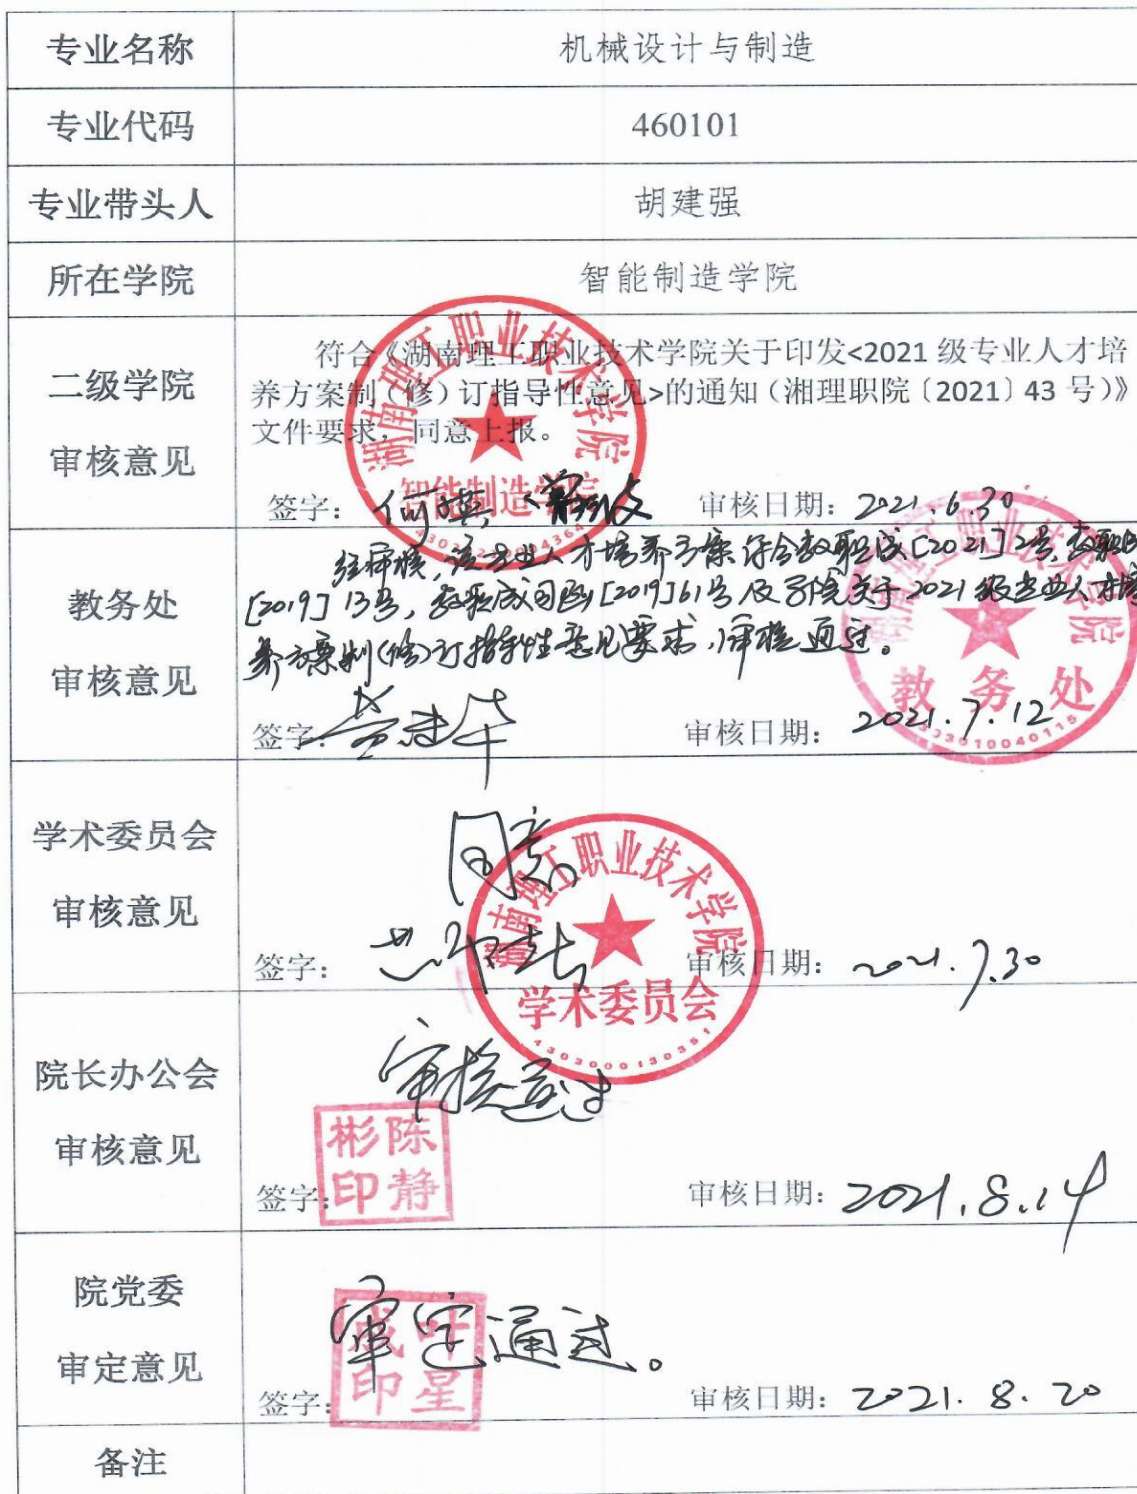 专业名称 机械设计与制造
专业代码 460101
专业带头人 胡建强
所在学院 智能制造学院
二级学院
审核意见
符合《湖南理工职业技术学院关于印发<2021 级专业人才培
养方案制（修）订指导性意见>的通知（湘理职院〔2021〕43 号）》
文件要求，同意上报。
签字： 审核日期：2021.6.30
湖南理工职业技术学院
智能制造学院
教务处
审核意见
经审核，该专业人才培养方案符合教职成[2021]2号，教职成
[2019]13号，教职成司函[2019]61号及学院关于2021级专业人才培
养方案制(修)订指导性意见要求，审核通过。
签字： 审核日期：2021.7.12
湖南理工职业技术学院
教务处
4303010040115
学术委员会
审核意见
同意
签字： 审核日期：2021.7.30
湖南理工职业技术学院
学术委员会
4303000130351
院长办公会
审核意见
审核通过
签字： 审核日期：2021.8.14
陈静彬印
院党委
审定意见
审定通过。
签字： 审核日期：2021.8.20
叶星成印
备注